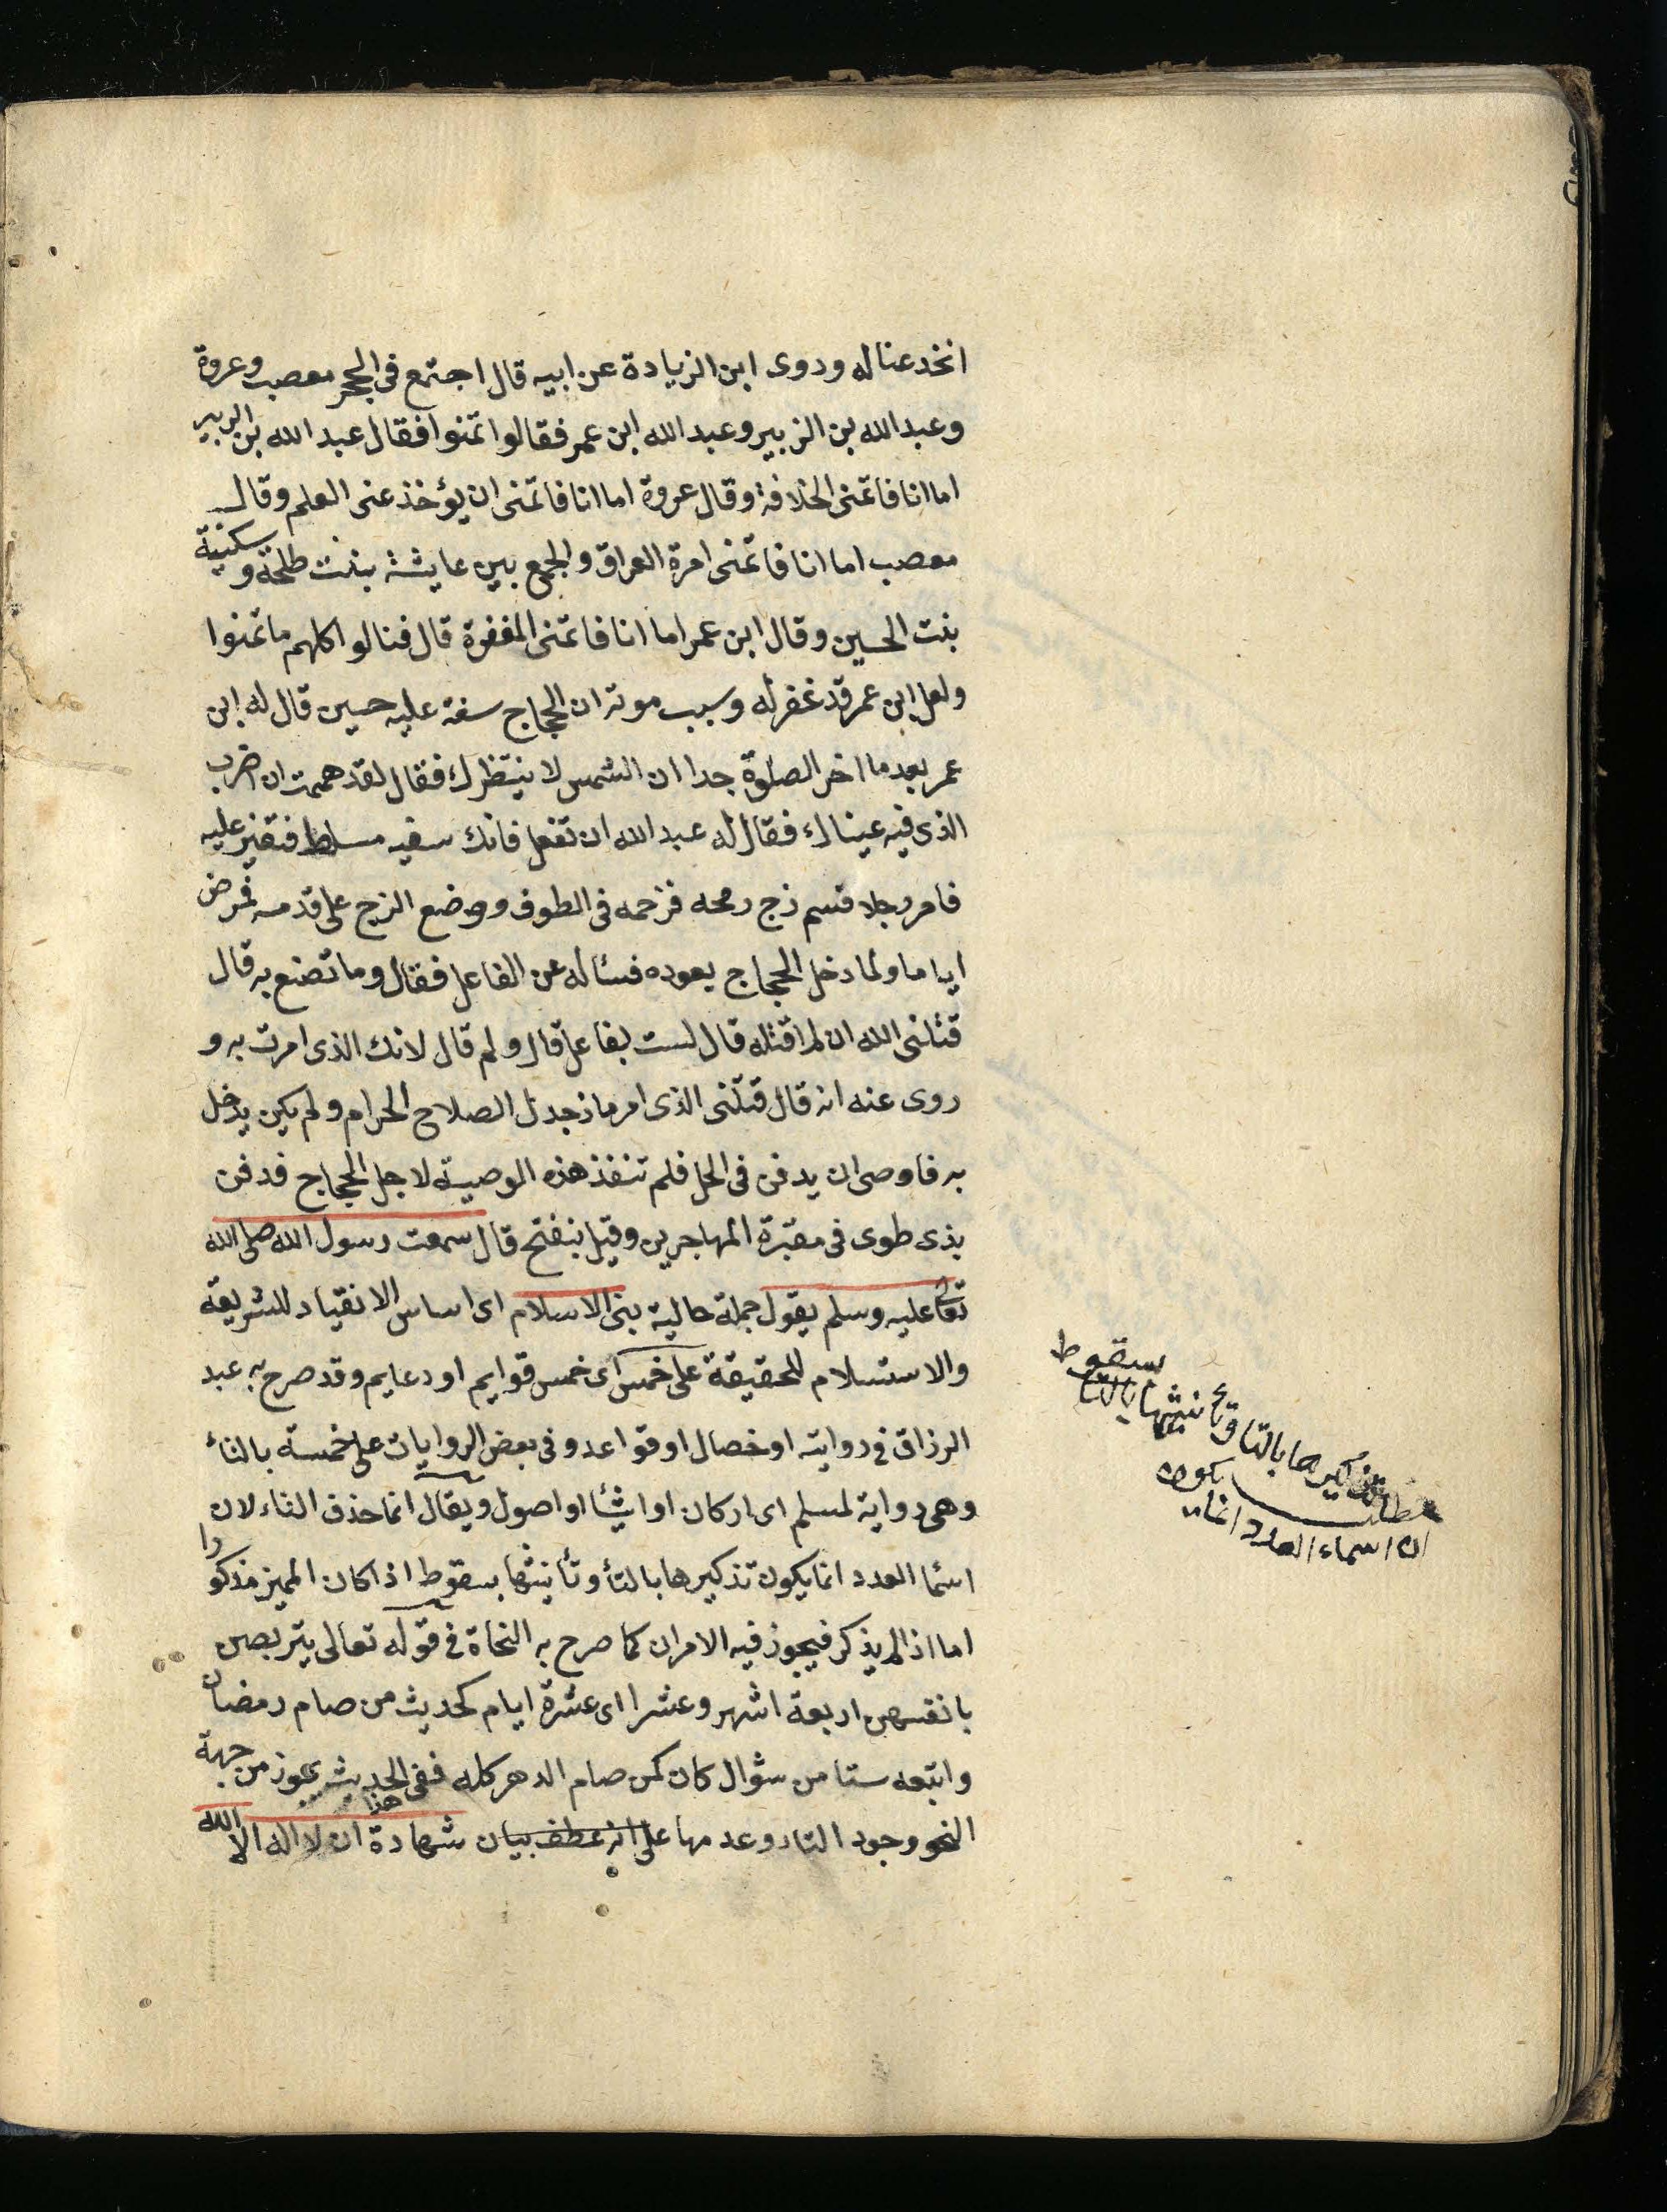 انخدعنا له وروى ابن الزيادة عن ابيه قال اجتمع فى الحجر معصب وعروة
وعبد الله بن الزبير وعبد الله ابن عمر فقالوا تمنوا فقال عبد الله بن الزبير
اما انا فاتمنى الخلافة وقال عروة اما انا فاتمنى ان يؤخذ عنى العلم وقال
معصب اما انا فاتمنى امرة العراق والجمع بين عايشة بنت طلحة وسكنية
بنت الحسين وقال ابن عمر اما انا فاتمنى المغفرة قال فنالوا كلهم ما تمنوا
ولعل ابن عمر قد غفر له وسبب موته ان الحجاج سفه عليه حسين قال له ابن
عمر بعد ما اخر الصلوة جدا ان الشمس لا ينتظرك فقال لقد هممت ان اضرب
الذى فيه عيناك فقال له عبد الله ان تفعل فانك سفيه مسلط فتغير عليه
فامر رجلا فسم زج رمحه فزحمه فى الطوف ووضع الزج على قدمه فمرض
اياما ولما دخل الحجاج يعوده فسئاله عن الفاعل فقال وما تصنع به قال
قتلنى الله ان لم اقتله قال لست بفاعل قال ولم قال لانك الذى امرت به و
روى عنه انه قال قتلنى الذى امر ماذجدل الصلاح الحرام ولم يكن يدخل
به فاوصى ان يدفن فى الحل فلم تنفذ هذه الوصية لاجل الحجاج فدفن
بذى طوى فى مقبرة المهاجرين وقيل بنفتح قال سمعت رسول الله صلى الله
تعالى عليه وسلم يقول جملة حالية بنى الاسلام اى اساس الانقياد للشريعة
والاستسلام للحقيقة على خمس اى خمس قوايم او دعايم وقد صرح به عبد
الرزاق فى روايته او خصال او قواعد وفى بعض الروايات على خمسة بالتاء
وهى رواية لمسلم اى اركان او اشيئا او اصول ويقال انما حذف التاء لان
اسما العدد انما يكون تذكيرها بالتأ وتأنيثها بسقوط اذا كان المميز مذكورا
اما اذا لم يذكر فيجوز فيه الامران كما صرح به النحاة فى قوله تعالى يتربصن
بانفسهن اربعة اشهر وعشرا اى عشرة ايام كحديث من صام رمضان
واتبعه ستا من شوال كان كمن صام الدهر كله ففى الحديث يجوز من جهة
هذا
النحو وجود التاء وعدمها على انه عطف بيان شهادة ان لا اله الا الله
مطلب
ان اسماء العدد انما يكون
تذكيرها بالتا وتأنيثها بالتا
بسقوط